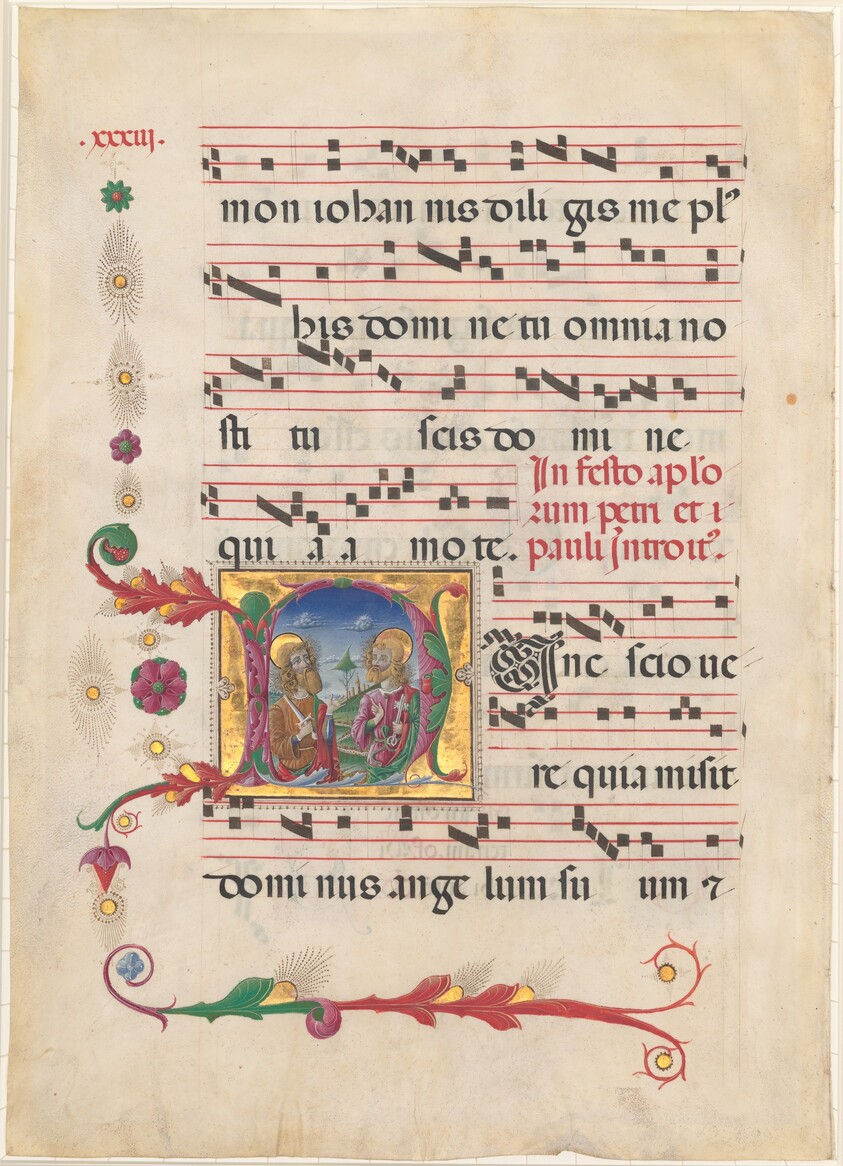 .xxxiij.
mon iohan nis dili gis me plꝰ
his domi ne tu omnia no
sti tu scis do mi ne
qui a a mo te.
In festo aplo
rum petri et
pauli Introitꝰ.
Nunc scio ue
re quia misit
domi nus ange lum su um ⁊